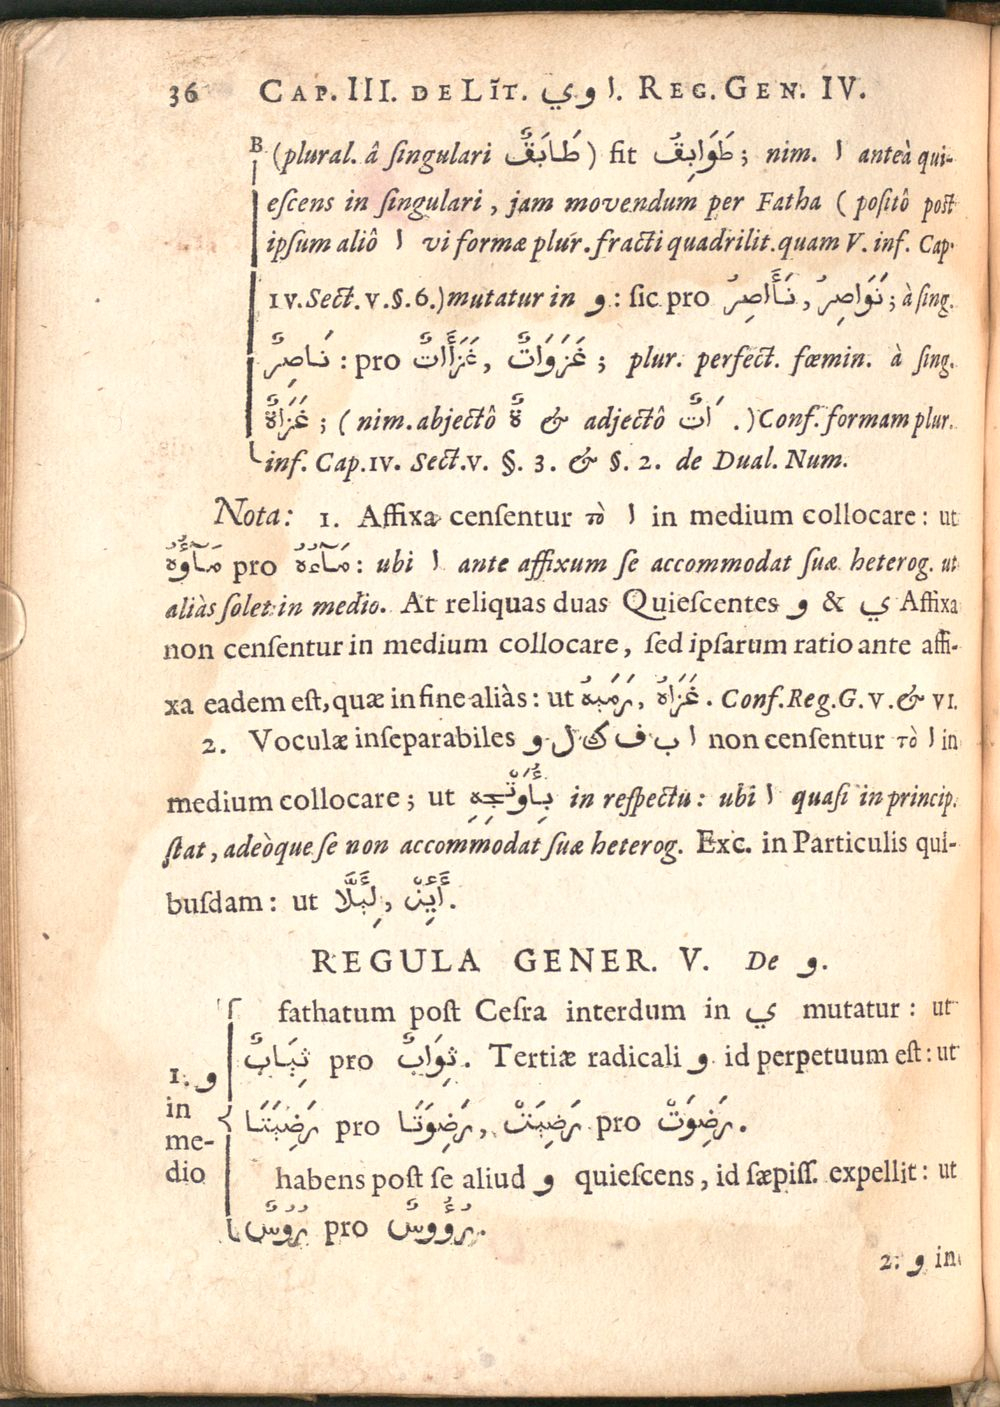 36 CAP. III. DE LĨT. اوي. REG. GEN. IV.
B (plural. â ſingulari طَابَقٌ) fit طَوَابِقُ; nim. ا anteà qui-
eſcens in ſingulari, jam movendum per Fatha (poſitô poſt
ipſum aliô ا vi formæ plur. fracti quadrilit. quam V. inf. Cap.
IV. Sect. V. §. 6.) mutatur in و: ſic pro نَوَاصِرُ, نَأَاصِرُ; à ſing.
نَاصِرٌ: pro غَزَوَاتٌ, غَزَأَاتٌ; plur. perfect. fœmin. à ſing.
غَزَاةٌ; (nim. abjectô ةٌ & adjectô اَتٌ.) Conf. formam plur.
inf. Cap. IV. Sect. V. §. 3. & §. 2. de Dual. Num.
Nota: 1. Affixa cenſentur τὸ ا in medium collocare: ut
مَآؤُهُ pro مَآءُهُ: ubi ا ante affixum ſe accommodat ſuæ heterog. ut
aliàs ſolet in medio. At reliquas duas Quieſcentes و & ي Affixa
non cenſentur in medium collocare, ſed ipſarum ratio ante affi-
xa eadem eſt, quæ in fine aliàs: ut غَزَاهُ, رَمَيهُ. Conf. Reg. G. V. & VI.
2. Voculæ inſeparabiles ا ب ف ك ل و non cenſentur τὸ ا in
medium collocare; ut بِأَوْجُهِهِ in reſpectu: ubi ا quaſi in princip.
ſtat, adeòque ſe non accommodat ſuæ heterog. Exc. in Particulis qui-
buſdam: ut لِئَلَّا, أَيِنْ.
REGULA GENER. V. De و.
fathatum poſt Ceſra interdum in ي mutatur: ut
ثِيَابٌ pro ثِوَابٌ. Tertiæ radicali و id perpetuum eſt: ut
1. و
in
me-
dio
رَضِيَتَا pro رَضِوَتَا, رَضِيَتْ pro رَضِوَتْ.
habens poſt ſe aliud و quieſcens, id ſæpiſſ. expellit: ut
رُوُسٌ pro رُؤُوسٌ.
2. و in